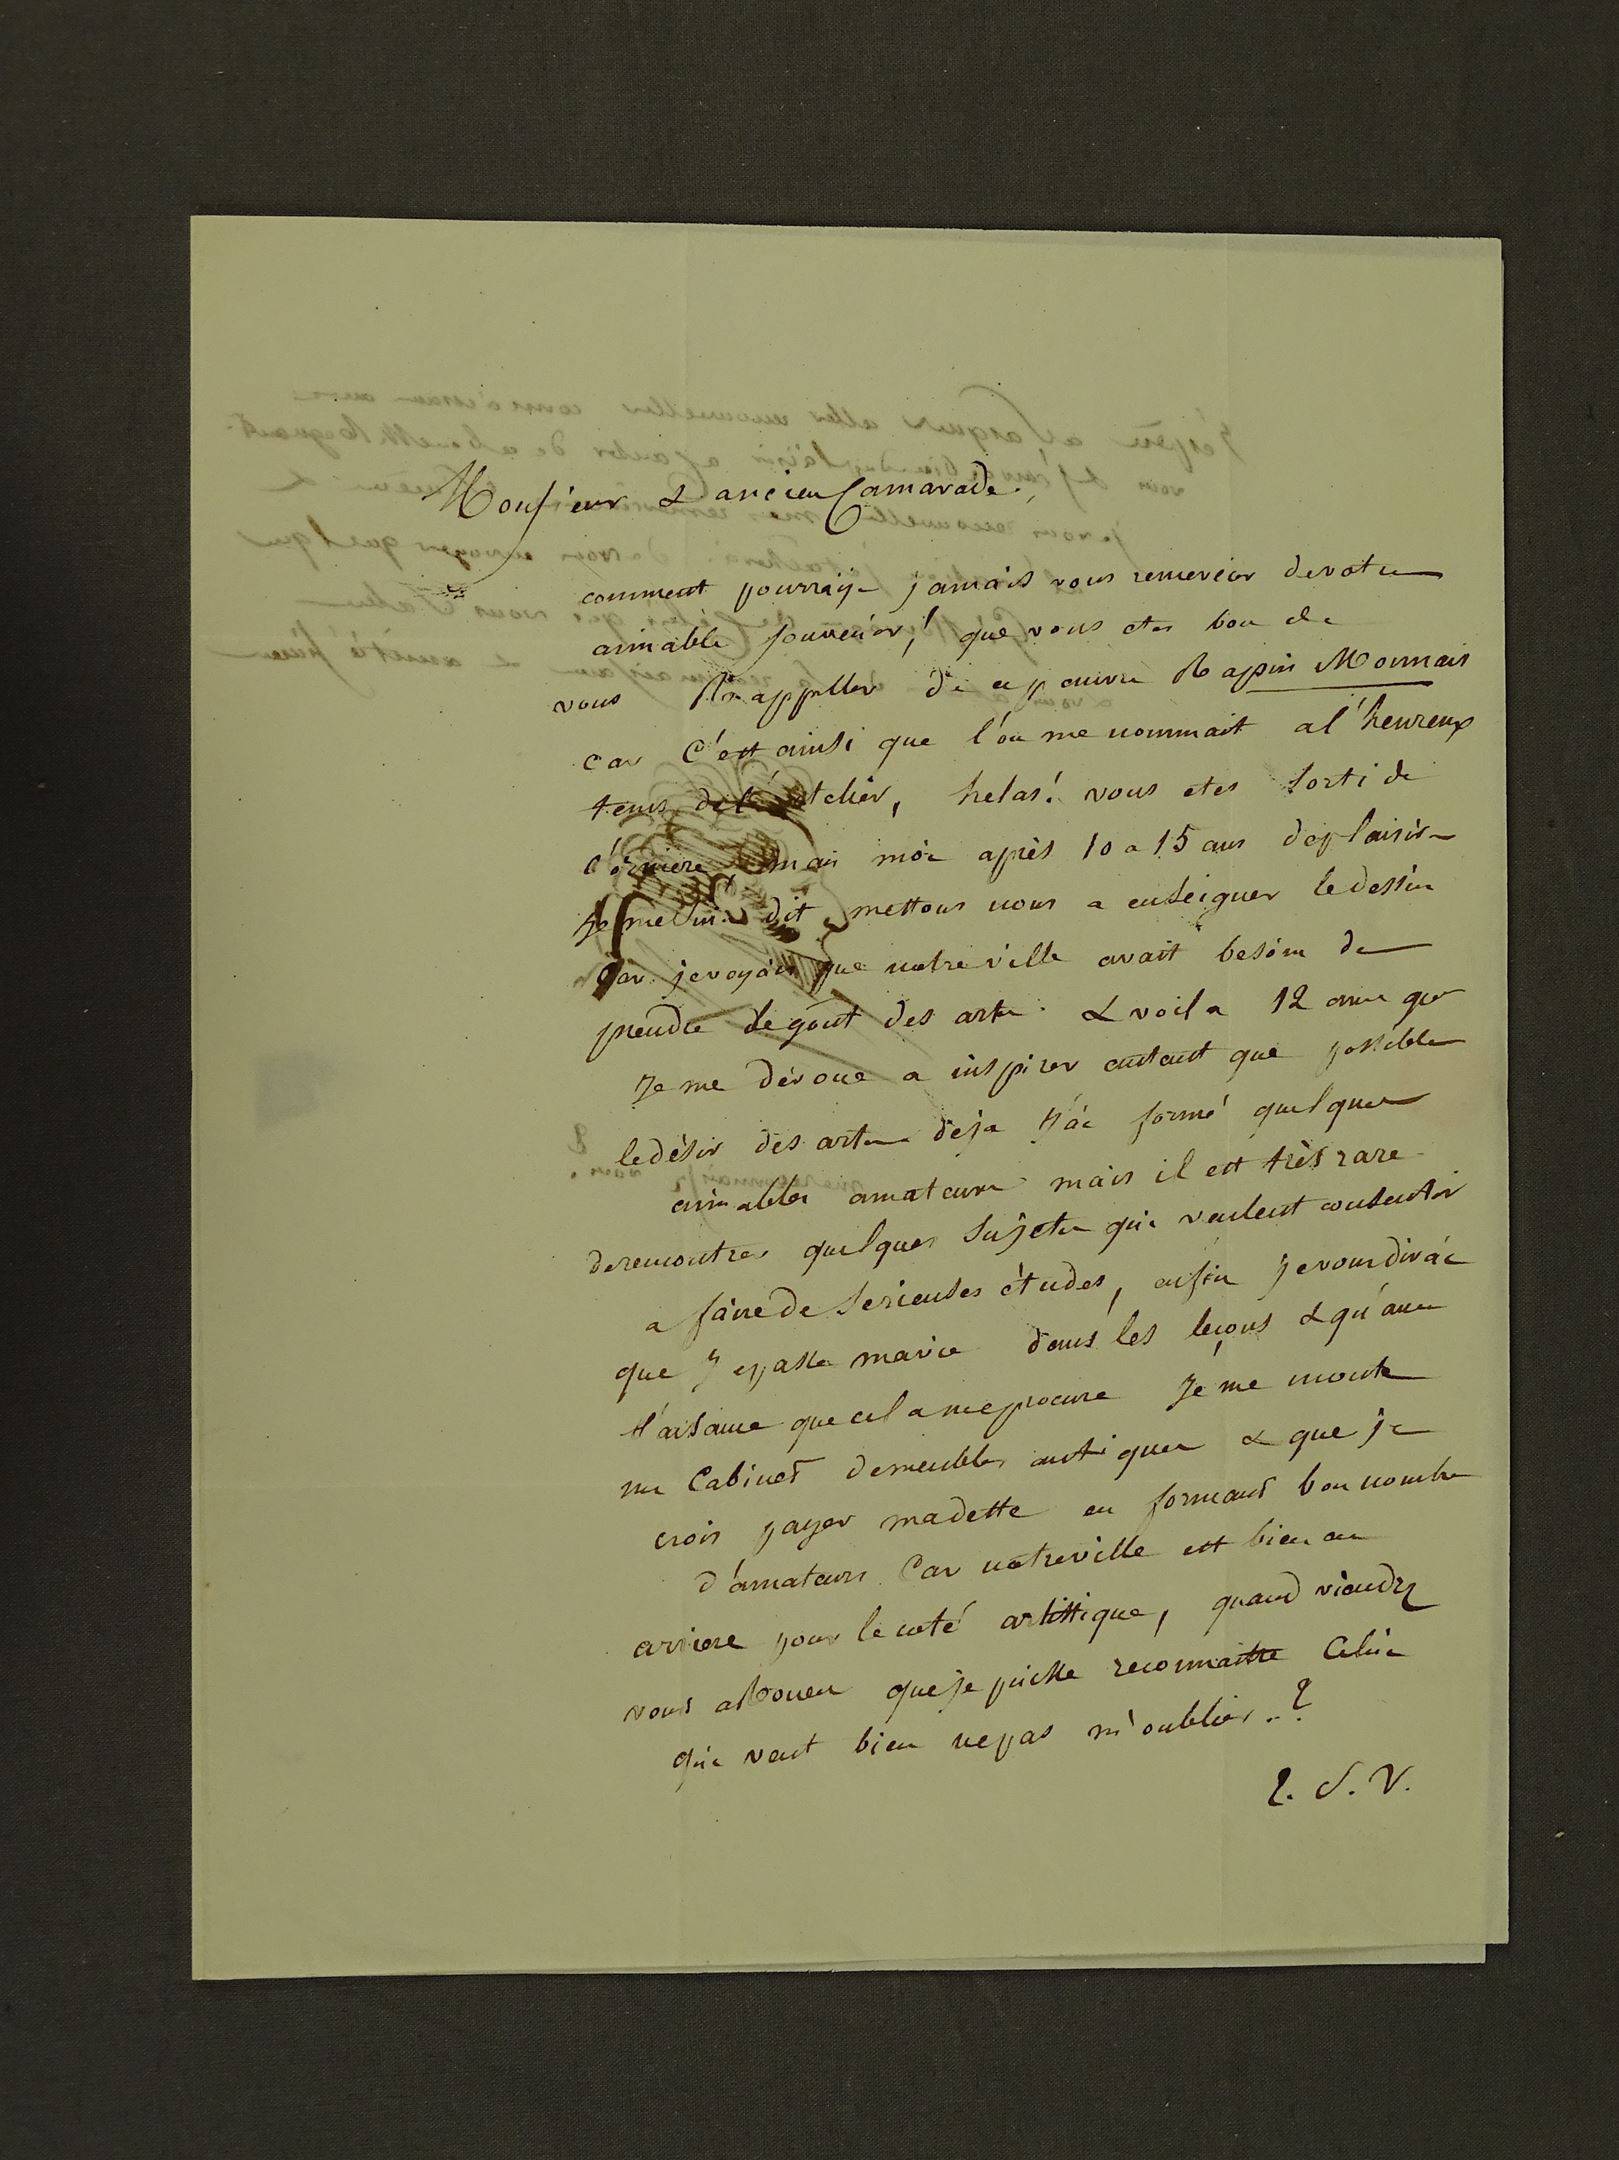 Monsieur & ancien Camarade.
comment pourraije jamais vous remercier de votre
aimable souvenir,! que vous etes bon de
vous Rappeller de ce pauvre Rapin Monnais
car c'est ainsi que l'on me nommait a l'heureux
tems de l'atelier, helas! vous etes sorti de
l'orniere mais moi après 10 a 15 ans de plaisir
Je me suis dit mettons nous a enseigner le dessin
car je voyais que notre ville avait besoin de
prendre le goût des arts. & voila 12 ans que
Je me dévoue a inspirer autant que possible
le désir des arts deja J'ai formé quelques
aimables amateurs mais il est très rare
de rencontrer quelques sujets qui veulent consentir
a faire de serieuses études, enfin Je vous dirai
que Je passe ma vie dans les leçons & qu'avec
l'aisance que cela me procure Je me monte
un Cabinet de meubles antiques & que je
crois payer ma dette en formant bon nombre
d'amateurs Car notre ville est bien en
arriere pour le coté artistique, quand viendrez
vous a Rouen que je puisse reconnaitre Celui
qui veut bien ne pas m'oublier..?
T. S. V.